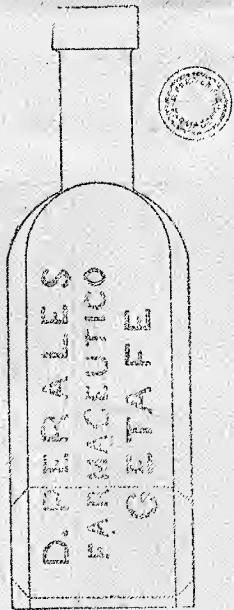 D. PERALES
FARMACEUTICO
GETAFE